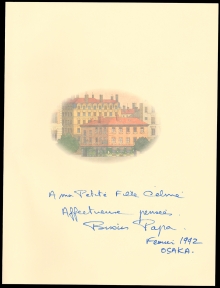 A ma Petite Fille Céline
Affectueuses pensées.
Papa.
Février 1992
OSAKA.